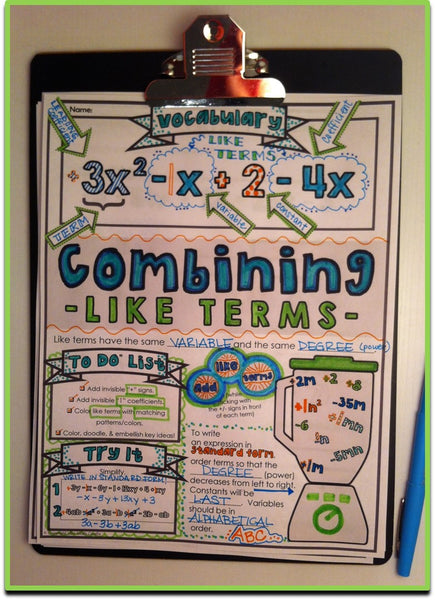 Name:
Vocabulary
LIKE
TERMS
LEADING
COEFFICIENT
coefficient
+3x²-1x+2-4x
TERM
variable
constant
Combining
-LIKE TERMS-
Like terms have the same VARIABLE and the same DEGREE (power)
TO DO LIST
Add invisible "+" signs.
Add invisible "1" coefficients.
Color like terms with matching
patterns/colors.
Color, doodle, & embellish key ideas!
add like terms
(while
sticking with
the +/- signs in front
of each term)
Try It
Simplify.
WRITE IN STANDARD FORM!
1
-x - 5y + 13xy + 3
2
3a - 3b + 3ab
To write
an expression in
standard form,
order terms so that the
DEGREE (power)
decreases from left to right.
Constants will be
LAST. Variables
should be in
ALPHABETICAL
order.
ABC
+2m +2 +8
+1n² -35m
-6 +1mn
-5mn
+1m